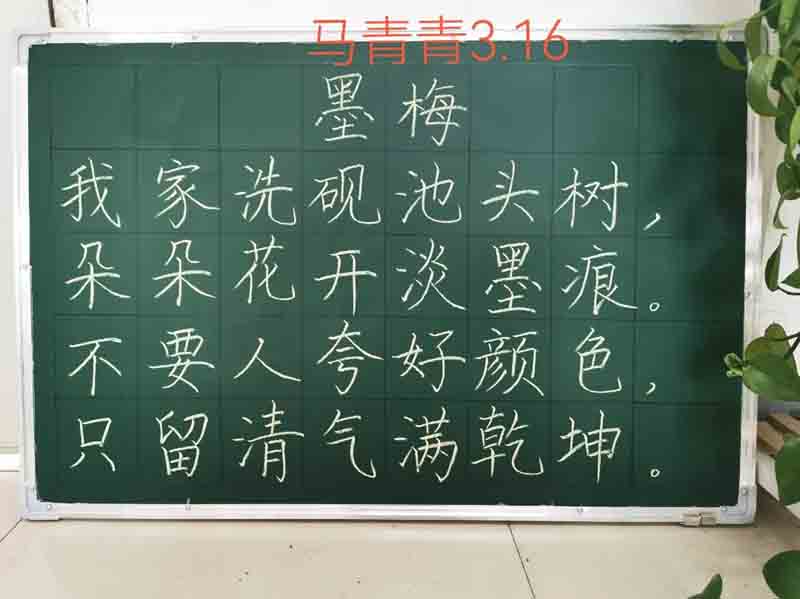 马青青3.16
墨梅
我家洗砚池头树，
朵朵花开淡墨痕。
不要人夸好颜色，
只留清气满乾坤。